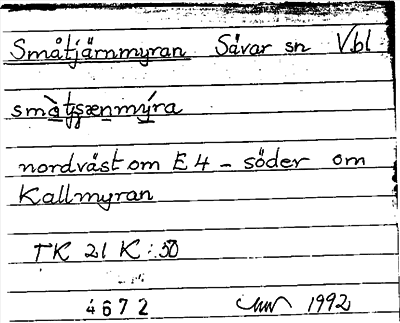 Småtjärnmyran Sävar sn Vbl
nordväst om E4 - söder om
Kallmyran
TK 21 K:50
4672 1992